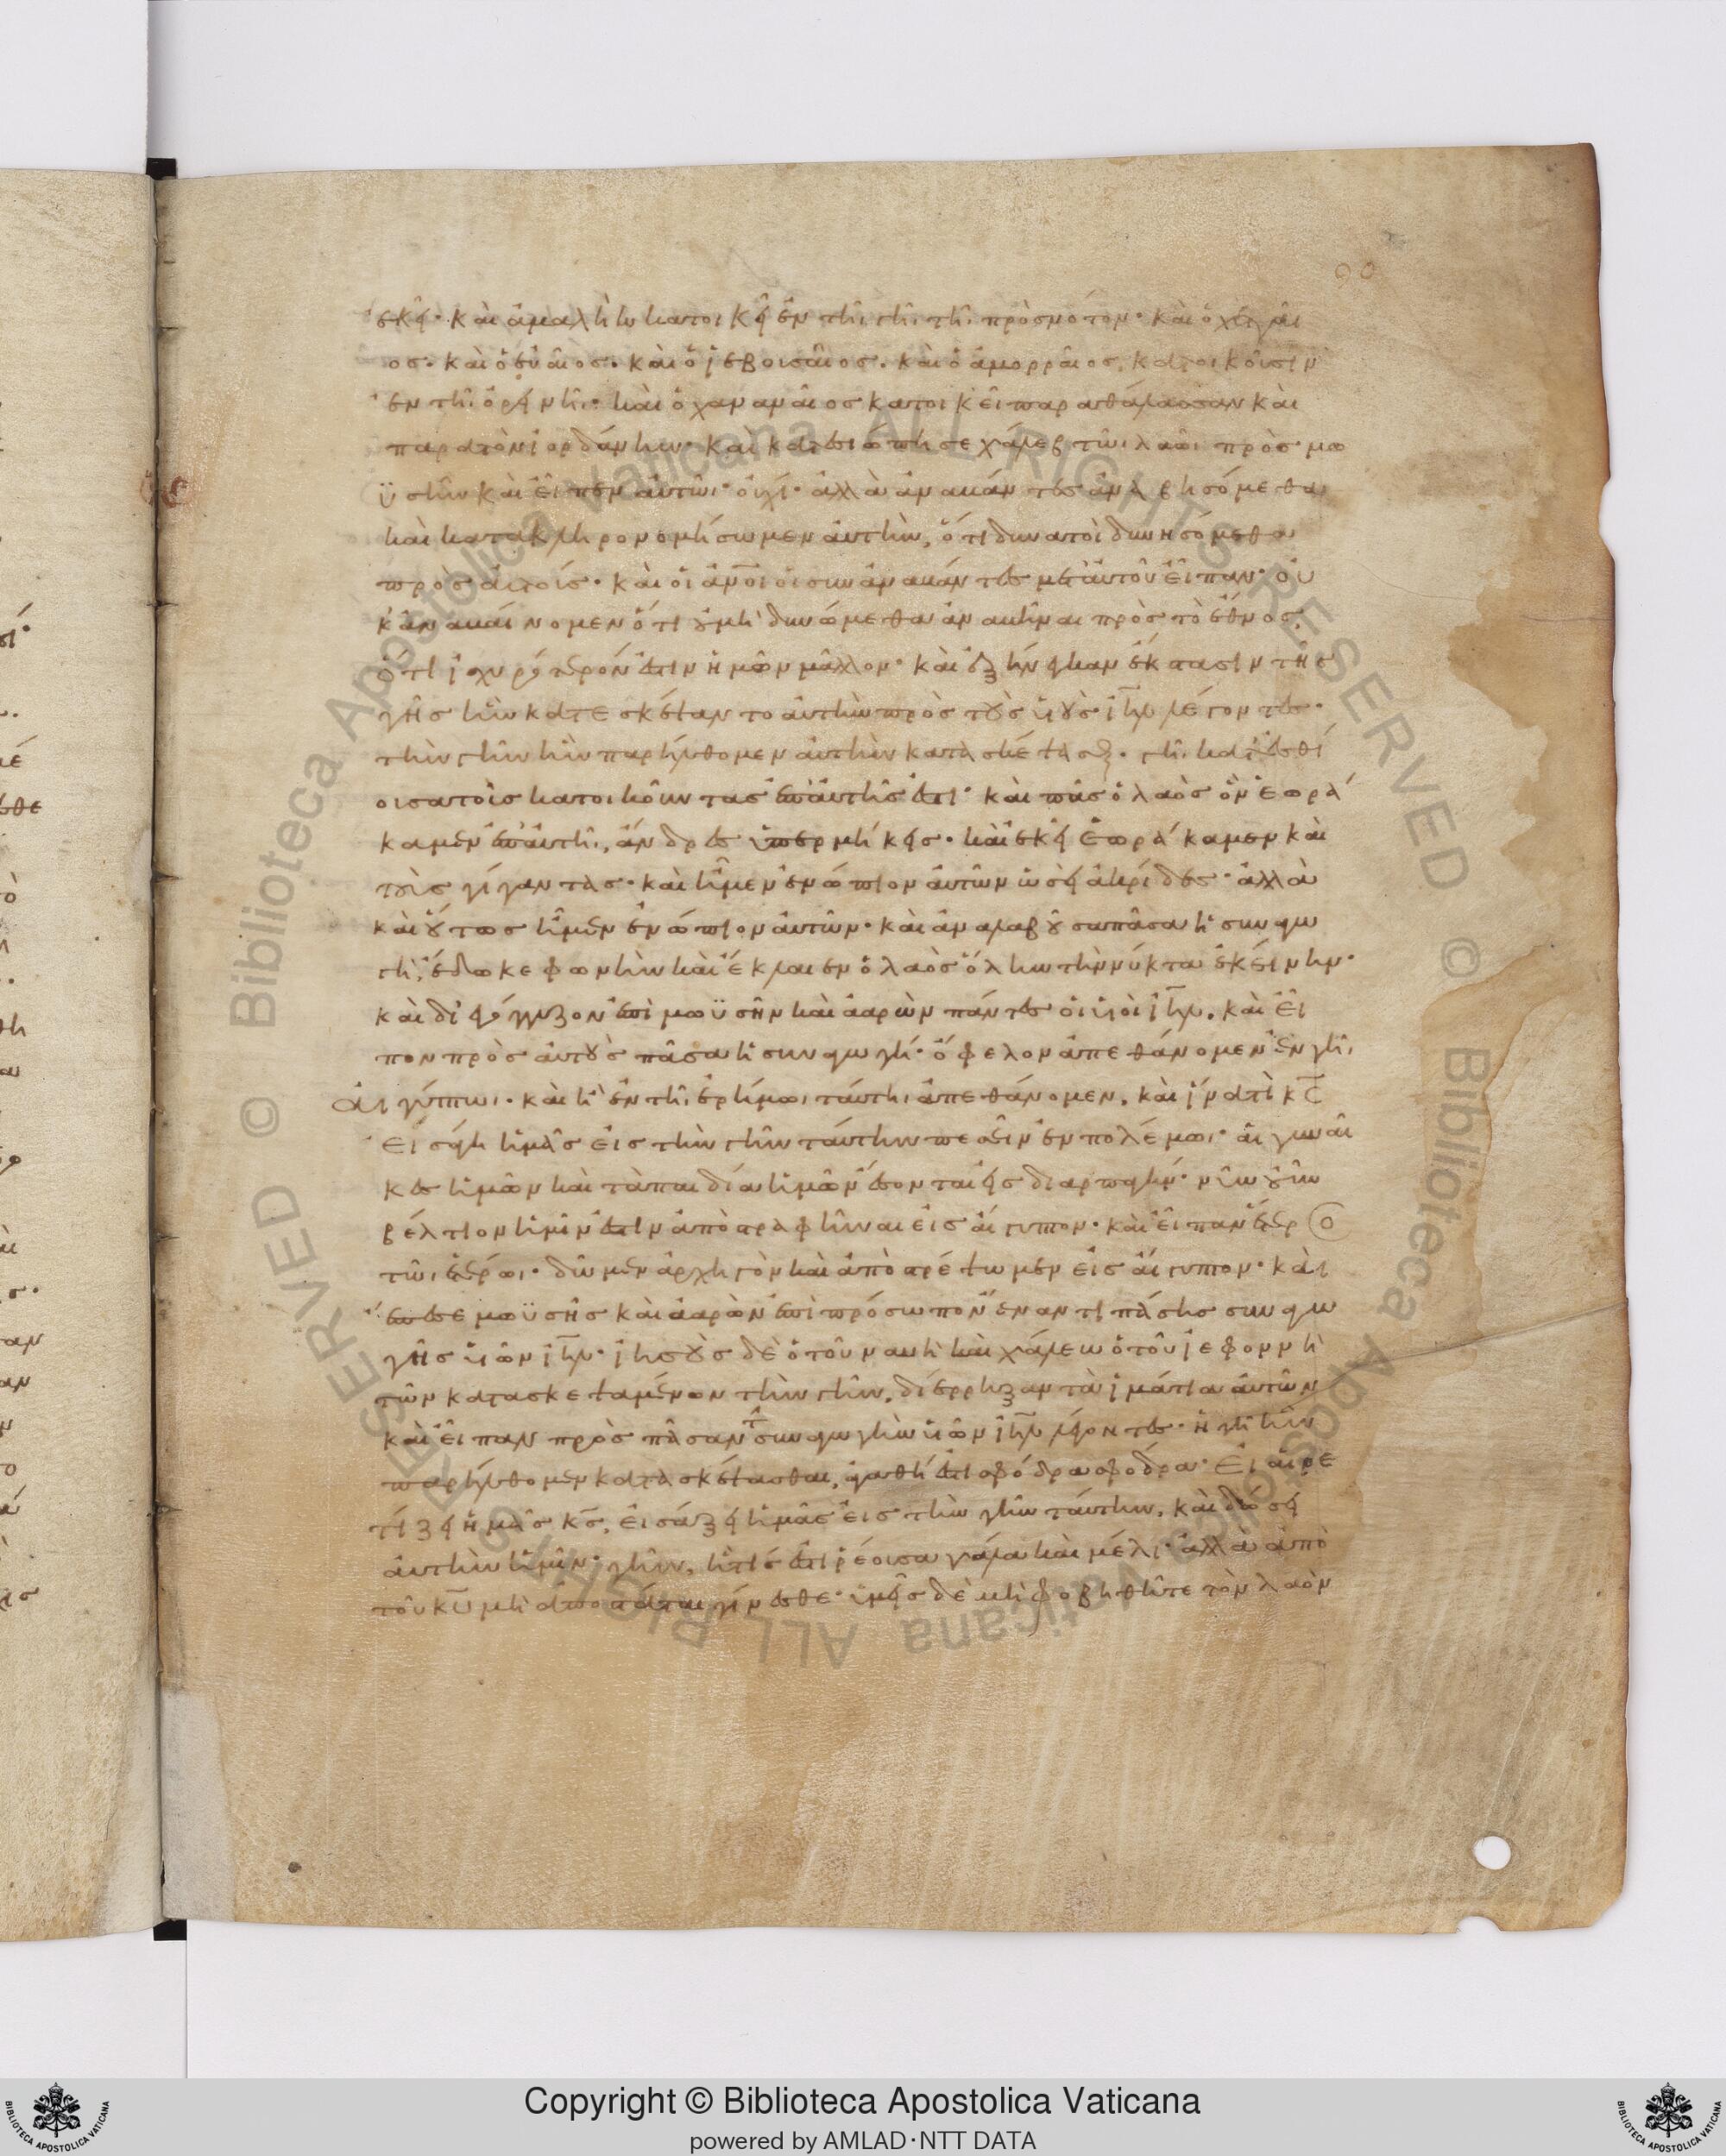 ἐκεῖ· καὶ ἀμαλὴκ κατοικεῖ ἐν τῆι γῆι τῆι πρὸς νότον· καὶ ὁ χετταῖ
ος· καὶ ὁ εὐαῖος· καὶ ὁ ἰεβουσαῖος· καὶ ὁ ἀμορραῖος, κατοικοῦσιν
ἐν τῆι ὀρεινῆι· καὶ ὁ χαναναῖος κατοικεῖ παρα θάλασσαν καὶ
παρα τὸν ἰορδάνην· καὶ κατεσιώπησε χάλεβ τὸν λαὸν πρὸς μω
ϋσῆν καὶ εἶπεν αὐτῶι· οὐχί· ἀλλὰ ἀναβάντες ἀναβησόμεθα
καὶ κατακληρονομήσωμεν αὐτὴν, ὅτι δυνατοὶ δυνησόμεθα
πρὸς αὐτούς· καὶ οἱ ἄνοι οἱ συναναβάντες μετ αὐτοῦ εἶπαν· οὐ
κ ἀναβαίνομεν ὅτι οὐ μὴ δυνώμεθα ἀναβῆναι πρὸς τὸ ἔθνος,
ὅτι ἰσχυρότερόν ἐστιν ἡμῶν μᾶλλον· καὶ ἐξήνεγκαν ἔκστασιν τῆς
γῆς ἣν κατεσκέψαντο αὐτὴν πρὸς τοὺς υἱοὺς ιηλ λέγοντες·
τὴν γῆν ἣν παρήλθομεν αὐτὴν κατασκέψασθαι· γῆ κατέσθί
ουσα τοὺς κατοικοῦντας ἐπ αὐτῆς ἐστι· καὶ πᾶς ὁ λαὸς ὃν ἑωρά
καμεν ἐπ αὐτῆι, ἄνδρες ὑπερμήκεις· καὶ ἐκεῖ ἑωράκαμεν καὶ
τοὺς γίγαντας· καὶ ἦμεν ἐνώπιον αὐτῶν ὡσεὶ ἀκρίδες· ἀλλὰ
καὶ οὕτως ἦμεν ἐνώπιον αὐτῶν· καὶ ἀναλαβοῦσα πᾶσα ἡ συναγω
γὴ, ἔδωκε φωνὴν καὶ ἔκλαιεν ὁ λαὸς ὅλην τὴν νύκτα ἐκείνην·
καὶ διεγόγγυζον ἐπὶ μωϋσῆν καὶ ἀαρὼν πάντες οἱ υἱοὶ ιηλ. καὶ εἶ
πον πρὸς αὐτοὺς πᾶσα ἡ συναγωγή· ὄφελον ἀπεθάνομεν ἐν γῆι
αἰγύπτωι· καὶ ἢ ἐν τῆι ἐρήμωι ταύτηι ἀπεθάνομεν, καὶ ἵνα τὶ κς
εἰσάγει ἡμᾶς εἰς τὴν γῆν ταύτην πεσεῖν ἐν πολέμωι· αἱ γυναῖ
κες ἡμῶν καὶ τὰ παιδία ἡμῶν ἔσονται εἰς διαρπαγήν· νῦν οὖν
βέλτιον ἡμῖν ἐστιν ἀποστραφῆναι εἰς αἴγυπτον· καὶ εἶπαν ἕτερος
τῶι ἑτέρωι· δῶμεν ἀρχηγὸν καὶ ἀποστρέψωμεν εἰς αἴγυπτον· καὶ
ἔπεσε μωϋσῆς καὶ ἀαρὼν ἐπὶ πρόσωπον ἔναντι πάσης συναγω
γῆς υἱῶν ιηλ· ἰησοῦς δὲ ὁ τοῦ ναυὴ καὶ χάλεβ ὁ τοῦ ἰεφοννὴ
τῶν κατασκεψαμένων τὴν γῆν, διέρρηξαν τὰ ἱμάτια αὐτῶν
καὶ εἶπαν πρὸς πᾶσαν τ συναγωγὴν υἱῶν ιηλ λέγοντες· ἡ γῆ ἣν
παρήλθομεν κατασκέψασθαι, ἀγαθή ἐστι σφόδρα σφόδρα· Εἰ αἱρε
τίζει ἡμᾶς κς, εἰσάξει ἡμᾶς εἰς τὴν γῆν ταύτην, καὶ δώσει
αὐτὴν ἡμῖν· γῆν, ἥτις ἐστι ῥέουσα γάλα καὶ μέλι· ἀλλὰ ἀπὸ
τοῦ κυ μὴ ἀποστάται γίνεσθε· ὑμεῖς δὲ μὴ φοβηθῆτε τὸν λαὸν
Copyright © Biblioteca Apostolica Vaticana
powered by AMLAD·NTT DATA